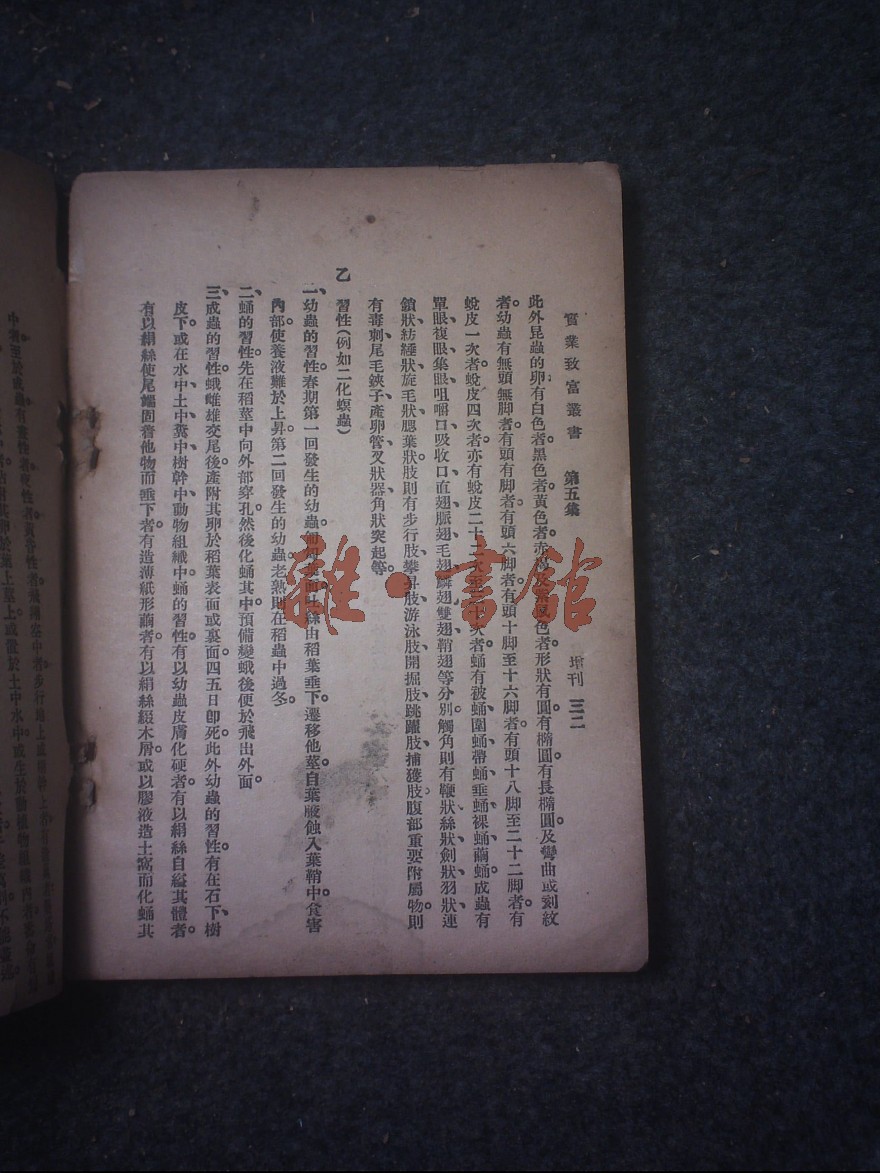 實業致富叢書 第五集 增刊 三二
此外昆蟲的卵有白色者。黑色者。黃色者。赤褐及藍黑色者。形狀有圓。有橢圓。有長橢圓。及彎曲或刻紋
者。幼蟲有無頭無脚者。有頭有脚者。有頭六脚者。有頭十脚至十六脚者。有頭十八脚至二十二脚者。有
蛻皮一次者。蛻皮四次者。亦有蛻皮二十 次至 十次者。蛹有被蛹、圍蛹、帶蛹、垂蛹、裸蛹、繭蛹。成蟲有
單眼、複眼、集眼、咀嚼口、吸收口、直翅、脈翅、毛翅、鱗翅、雙翅、鞘翅等分別。觸角則有鞭狀、絲狀、劍狀、羽狀、連
鎖狀、紡綞狀、旋毛狀、腮葉狀。肢則有步行肢、攀昇肢、游泳肢、開掘肢、跳躍肢、捕獲肢。腹部重要附屬物。則
有毒刺、尾毛、鋏子、產卵管、叉狀器、角狀突起等。
乙 習性(例如二化螟蟲)
一、幼蟲的習性。春期第一回發生的幼蟲。 吐絲由稻葉垂下。遷移他莖。自葉腋蝕入葉鞘中。食害
內部。使養液難於上昇。第二回發生的幼蟲。老熟則在稻蟲中過冬。
二、蛹的習性。先在稻莖中向外部穿孔。然後化蛹其中。預備變蛾後便於飛出外面。
三、成蟲的習性。蛾雌雄交尾後。產附其卵於稻葉表面或裏面。四五日卽死。此外幼蟲的習性。有在石下、樹
皮下。或在水中、土中、糞中、樹幹中、動物組織中。蛹的習性。有以幼蟲皮膚化硬者。有以絹絲自縊其體者。
有以絹絲使尾端固着他物而垂下者。有造薄紙形繭者。有以絹絲綴木屑。或以膠液造土窩而化蛹其
中者。至於成蟲。有
雜·書館